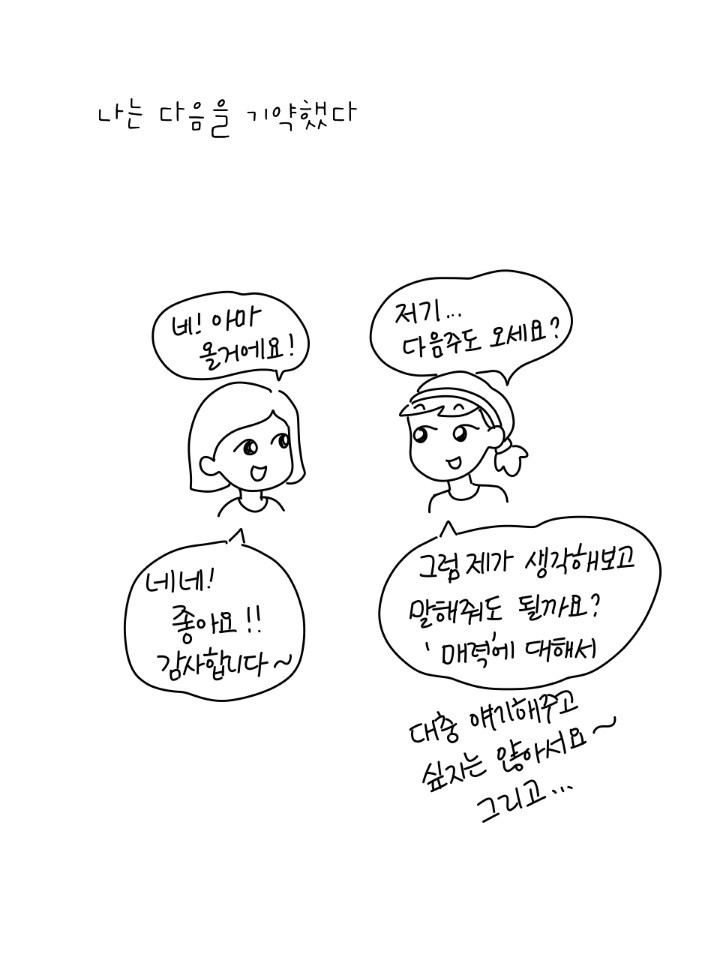 나는 다음을 기약했다
저기...
다음주도 오세요?
네! 아마
올거에요!
그럼 제가 생각해보고
말해줘도 될까요?
'매력'에 대해서
대충 얘기해주고
싶지는 않아서요~
그리고...
네네!
좋아요!!
감사합니다~